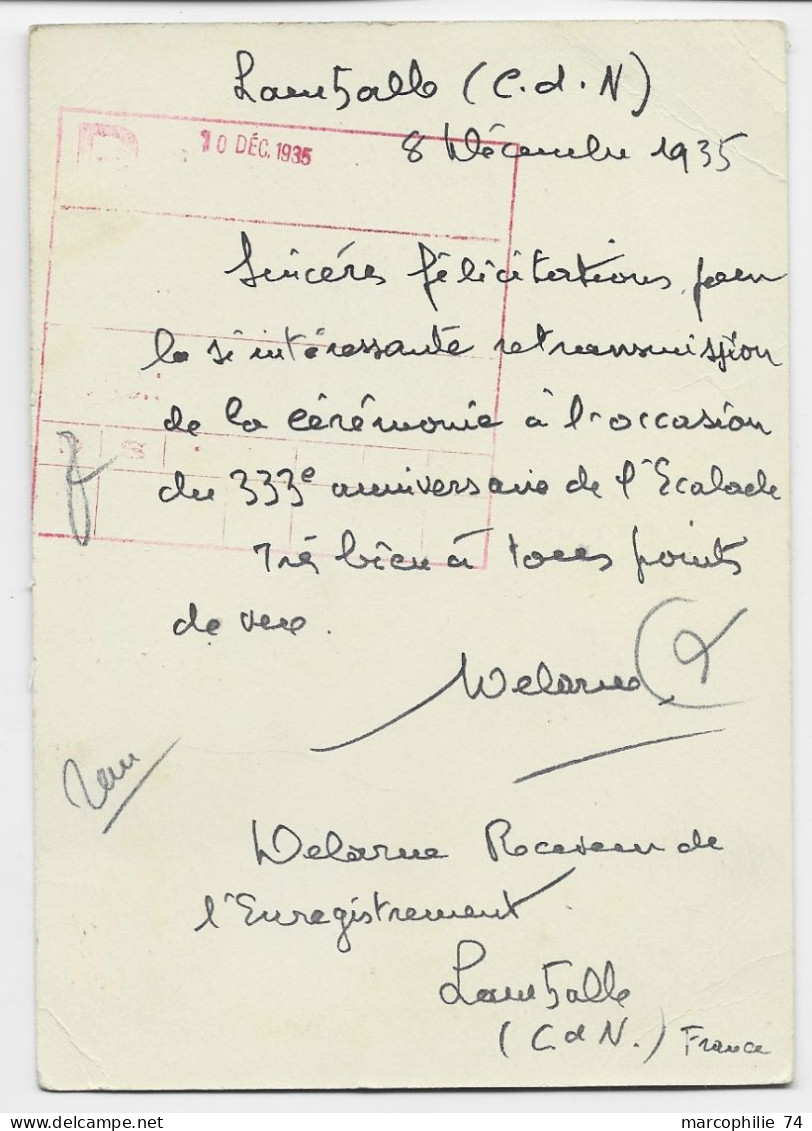 Lamballe (C.d.N)
10 DÉC. 1935
8 Décembre 1935
Sincéres félicitations pour
la si intéressante retransmission
de la cérémonie à l'occasion
du 333e anniversaire de l'Ecalade
Trés bien à tous points
de vue.
Delarue
Delarue Receveur de
l'Enregistrement
Lamballe
(C.d N.) France
marcophilie 74